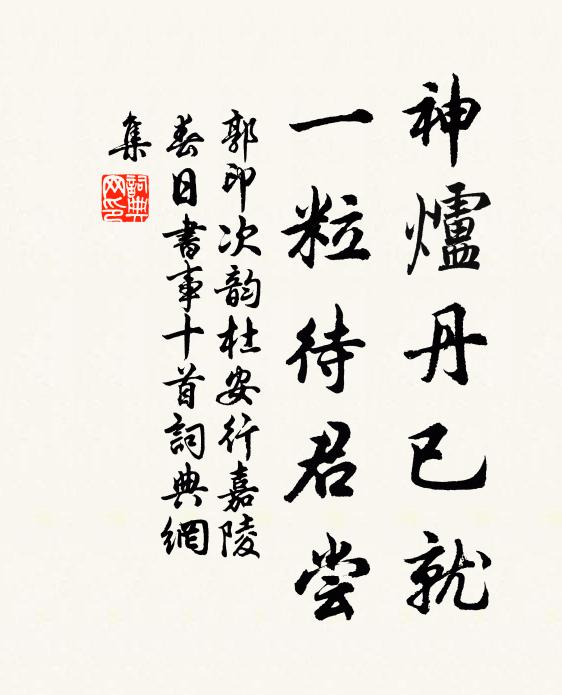 神爐丹已就
一粒待君尝
郭印次韵杜安行嘉陵
春日書事十首詞典網
集
詞典网印